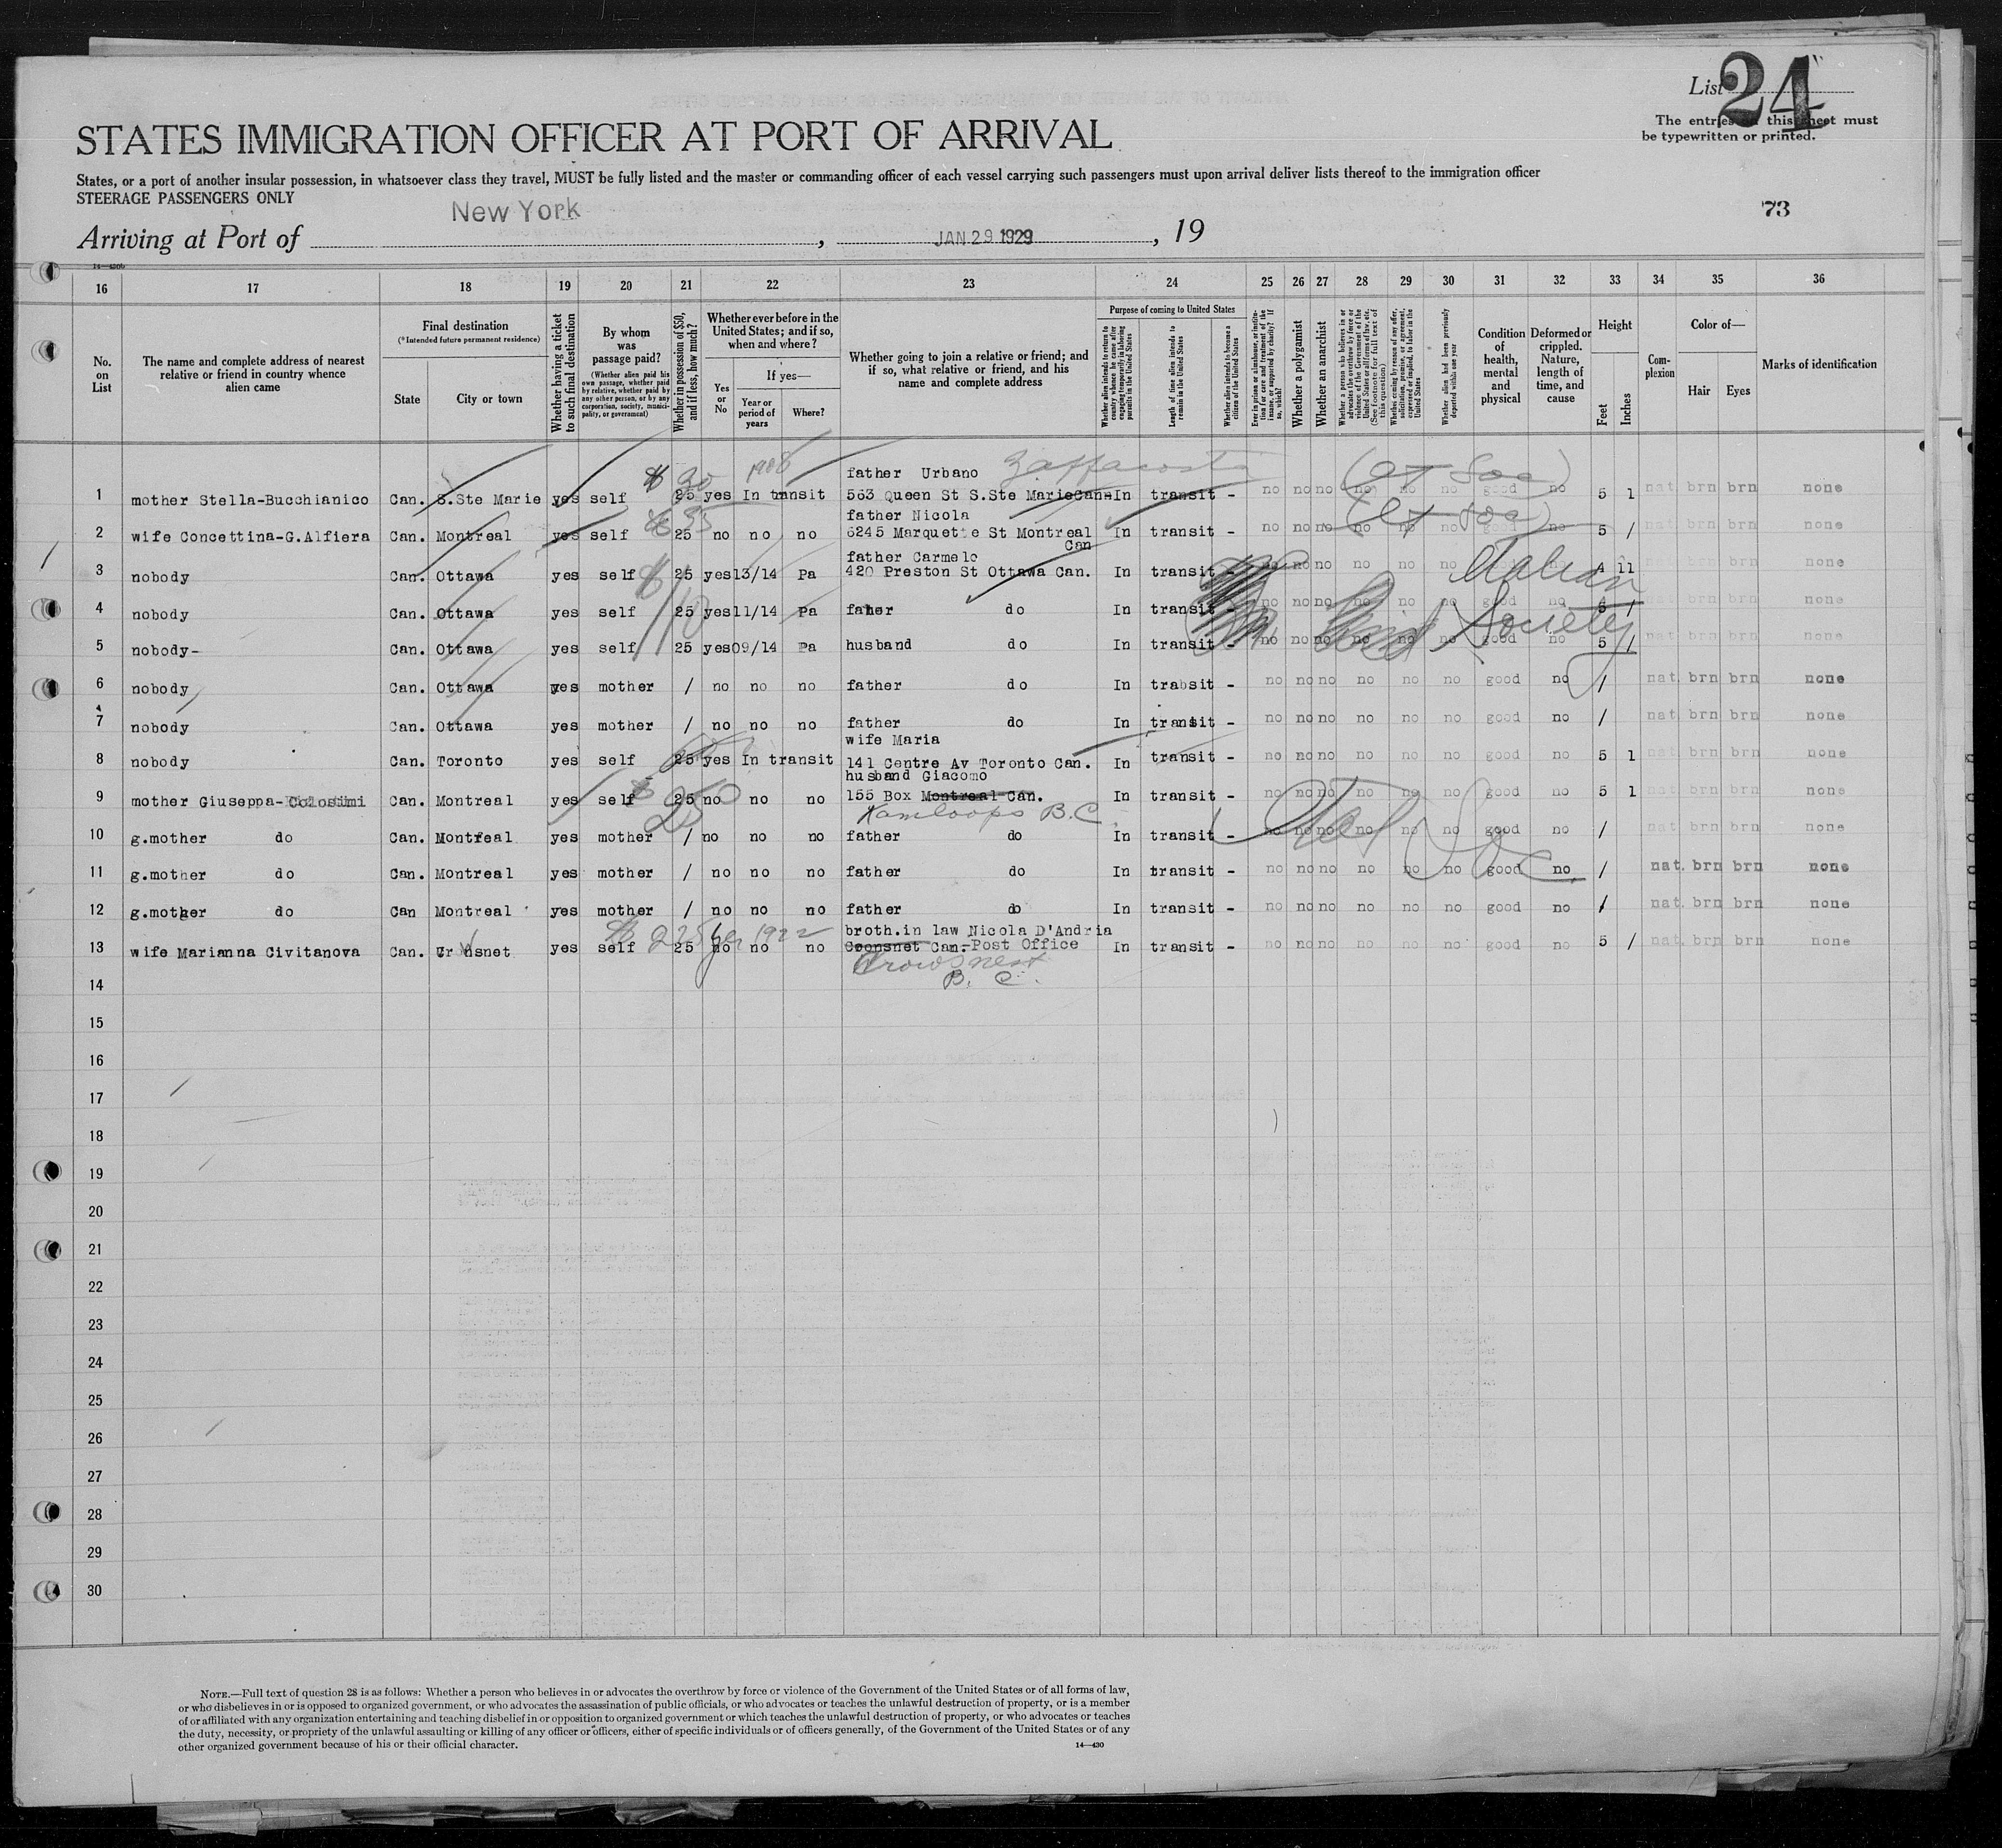 List 24
The entries on this sheet must
be typewritten or printed.
STATES IMMIGRATION OFFICER AT PORT OF ARRIVAL
States, or a port of another insular possession, in whatsoever class they travel, MUST be fully listed and the master or commanding officer of each vessel carrying such passengers must upon arrival deliver lists thereof to the immigration officer
STEERAGE PASSENGERS ONLY
73
Arriving at Port of New York, JAN 29 1929, 19
16 17 18 19 20 21 22 23 24 25 26 27 28 29 30 31 32 33 34 35 36
No. on List
The name and complete address of nearest relative or friend in country whence alien came
Final destination
(*Intended future permanent residence)
State
City or town
Whether having a ticket to such final destination
By whom was passage paid?
(Whether alien paid his own passage, whether paid by relative, whether paid by any other person, or by any corporation, society, municipality, or government)
Whether in possession of $50, and if less, how much?
Whether ever before in the United States; and if so, when and where?
Yes or No
If yes—
Year or period of years
Where?
Whether going to join a relative or friend; and if so, what relative or friend, and his name and complete address
Purpose of coming to United States
Whether alien intends to return to country whence he came after engaging temporarily in laboring pursuits in the United States
Length of time alien intends to remain in the United States
Whether alien intends to become a citizen of the United States
Ever in prison or almshouse, or institution for care and treatment of the insane, or supported by charity? If so, which?
Whether a polygamist
Whether an anarchist
Whether a person who believes in or advocates the overthrow by force or violence of the Government of the United States or all forms of law, etc. (See footnote for full text of this question)
Whether coming by reason of any offer, solicitation, promise, or agreement, expressed or implied, to labor in the United States
Whether alien had been previously deported within one year
Condition of health, mental and physical
Deformed or crippled. Nature, length of time, and cause
Height
Feet
Inches
Complexion
Color of—
Hair
Eyes
Marks of identification
$ 30 1908 father Urbano Zaffacosta
1 mother Stella-Bucchianico Can. S.Ste Marie yes self 25 yes In transit 563 Queen St S.Ste Marie Can- In transit - no no no no no no good no 5 1 nat brn brn none
$ 35 father Nicola
2 wife Concettina-G.Alfiera Can. Montreal yes self 25 no no no 6245 Marquette St Montreal Can In transit - no no no no no no no 5 / nat brn brn none
father Carmelo
3 nobody Can. Ottawa yes self 25 yes 13/14 Pa 420 Preston St Ottawa Can. In transit - no no no no no no 4 11 none
Italian Society
4 nobody Can. Ottawa yes self 25 yes 11/14 Pa father do In transit - no no no no no no good no 5 / nat brn brn none
5 nobody- Can. Ottawa yes self 25 yes 09/14 Pa husband do In transit - no no no no no no good no 5 / nat brn brn none
6 nobody Can. Ottawa yes mother / no no no father do In trabsit - no no no no no no good no / nat. brn brn none
7 nobody Can. Ottawa yes mother / no no no father do In transit - no no no no no no good no / nat. brn brn none
wife Maria
8 nobody Can. Toronto yes self 25 yes In transit 141 Centre Av Toronto Can. In transit - no no no no no no good no 5 1 nat brn brn none
husband Giacomo
9 mother Giuseppa-Colosimi Can. Montreal yes self $ 250 25 no no no 155 Box Montreal Can. In transit - no no no no no no good no 5 1 nat brn brn none
Kamloops B.C.
10 g.mother do Can. Montreal yes mother / no no no father do In transit - no no no no no no good no / nat brn brn none
11 g.mother do Can. Montreal yes mother / no no no father do In transit - no no no no no no good no / nat. brn brn none
12 g.mother do Can Montreal yes mother / no no no father do In transit - no no no no no no good no / nat. brn brn none
$ 225 yes 1922 broth.in law Nicola D'Andria
13 wife Marianna Civitanova Can. yes self 25 no no no Can.-Post Office In transit - no no no no no no good no 5 / nat. brn brn none
Crowsnest
B. C.
14
15
16
17
18
19
20
21
22
23
24
25
26
27
28
29
30
NOTE.—Full text of question 28 is as follows: Whether a person who believes in or advocates the overthrow by force or violence of the Government of the United States or of all forms of law,
or who disbelieves in or is opposed to organized government, or who advocates the assassination of public officials, or who advocates or teaches the unlawful destruction of property, or is a member
of or affiliated with any organization entertaining and teaching disbelief in or opposition to organized government or which teaches the unlawful destruction of property, or who advocates or teaches
the duty, necessity, or propriety of the unlawful assaulting or killing of any officer or officers, either of specific individuals or of officers generally, of the Government of the United States or of any
other organized government because of his or their official character.
14—430